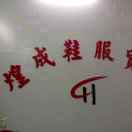 煌成鞋服
CH